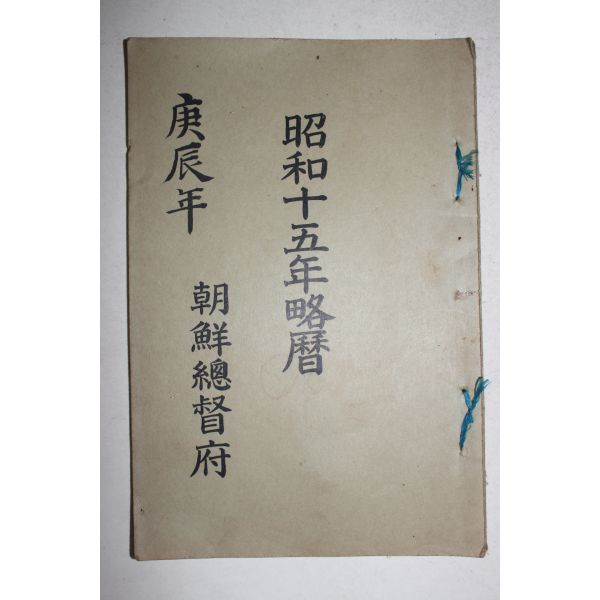 昭和十五年略暦
庚辰年
朝鮮總督府